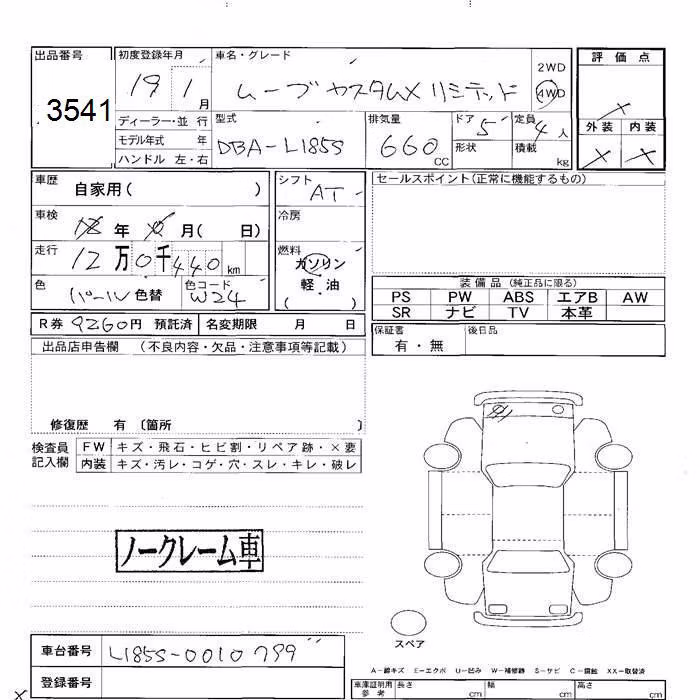 出品番号 初度登録年月 車名・グレード 評価点
3541 19 1月 ムーブカスタムX リミテッド 2WD 4WD
ディーラー・並行 型式 排気量 ドア 5 定員 4人 外装 内装
モデル年式 年 DBA-L185S 660CC 形状 積載 kg × ×
ハンドル 左・右
車歴 自家用( ) シフト AT セールスポイント(正常に機能するもの)
車検 年 月( 日) 冷房
走行 12万0千440km 燃料 ガソリン 軽油 ( )
色 パール 色替 色コード W24 装備品(純正品に限る)
PS PW ABS エアB AW
SR ナビ TV 本革
R券 9260円 預託済 名変期限 月 日 保証書 有・無 後日品
出品店申告欄 (不良内容・欠品・注意事項等記載)
修復歴 有 〔箇所 〕
検査員記入欄 FW キズ・飛石・ヒビ割・リペア跡・×要
内装 キズ・汚レ・コゲ・穴・スレ・キレ・破レ
ノークレーム車
スペア
車台番号 L185S-0010799
A-線キズ E-エクボ U-凹み W-補修跡 S-サビ C-腐蝕 XX-取替済
登録番号 車庫証明用参考 長さ cm 幅 cm 高さ cm